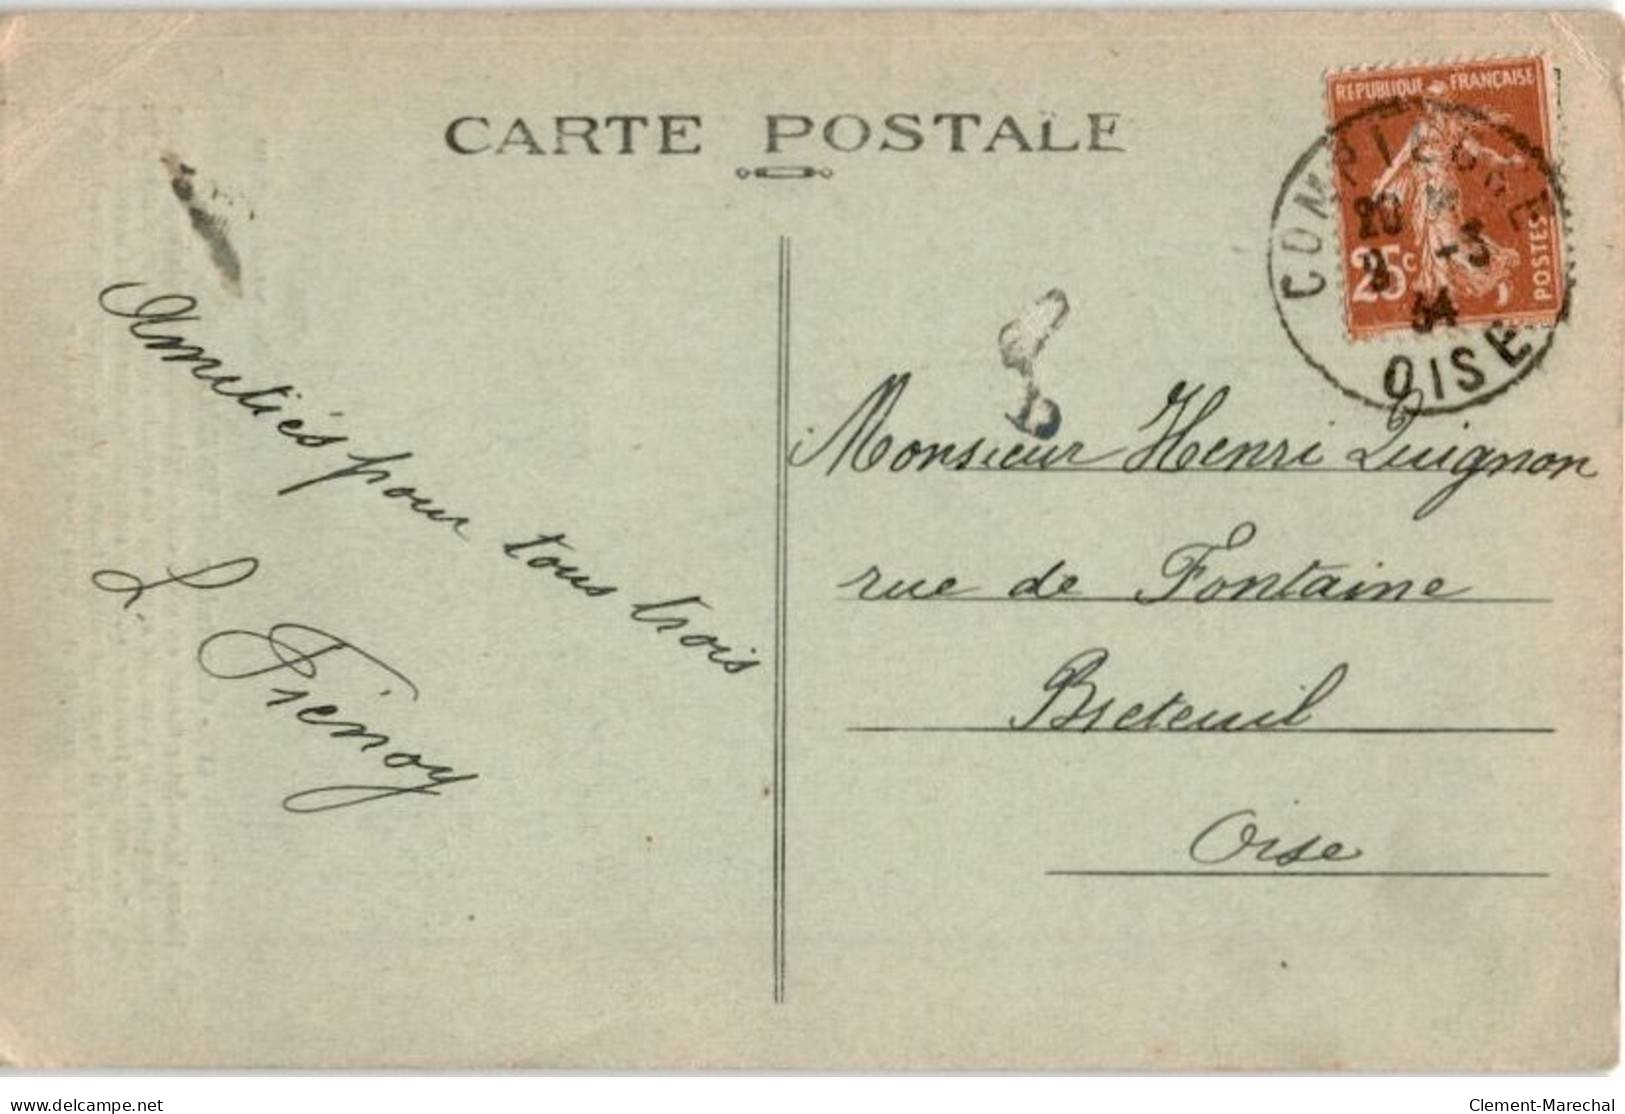 CARTE POSTALE
REPUBLIQUE FRANÇAISE
25c
POSTES
COMPIEGNE
20
9 -3
34
OISE
Amitiés pour tous trois
L. Frénoy
Monsieur Henri Quignon
rue de Fontaine
Breteuil
Oise
delcampe.net
Clement-Marechal